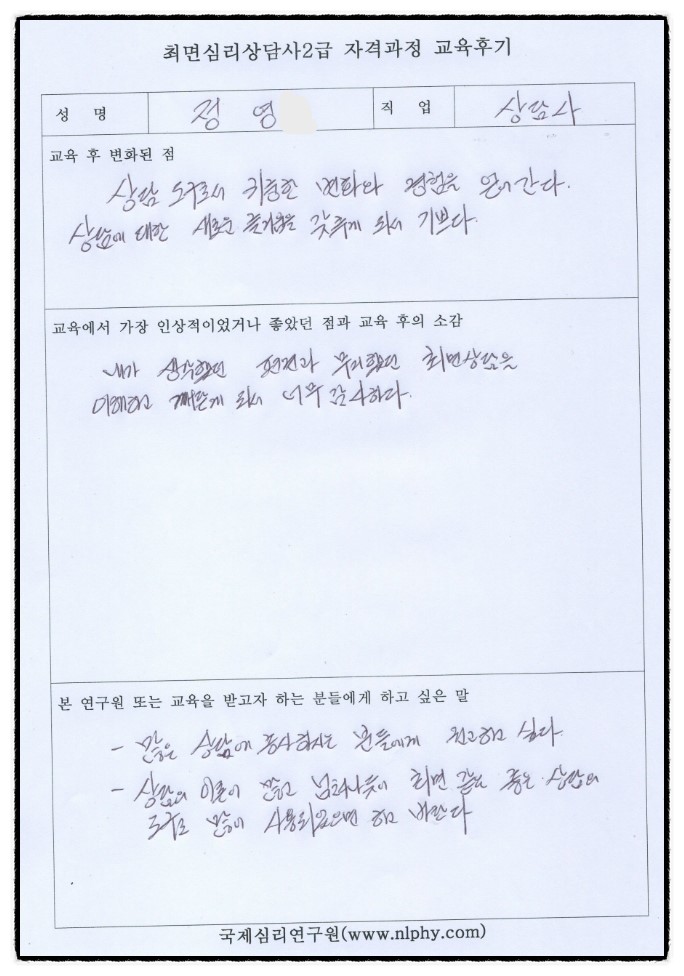 최면심리상담사2급 자격과정 교육후기
성 명 정 영 직 업 상담사
교육 후 변화된 점
상담 도구로서 귀중한 변화와 경험을 얻어간다.
상담에 대한 새로운 즐거움을 갖추게 되서 기쁘다.
교육에서 가장 인상적이었거나 좋았던 점과 교육 후의 소감
내가 생각했던 편견과 무지했던 최면상담을
이해하고 깨닫게 되서 너무 감사하다.
본 연구원 또는 교육을 받고자 하는 분들에게 하고 싶은 말
- 많은 상담에 종사하시는 분들에게 권고하고 싶다.
- 상담의 이론이 많고 넘쳐나듯이 최면 같은 좋은 상담의
도구로 많이 사용되었으면 하고 바란다
국제심리연구원(www.nlphy.com)